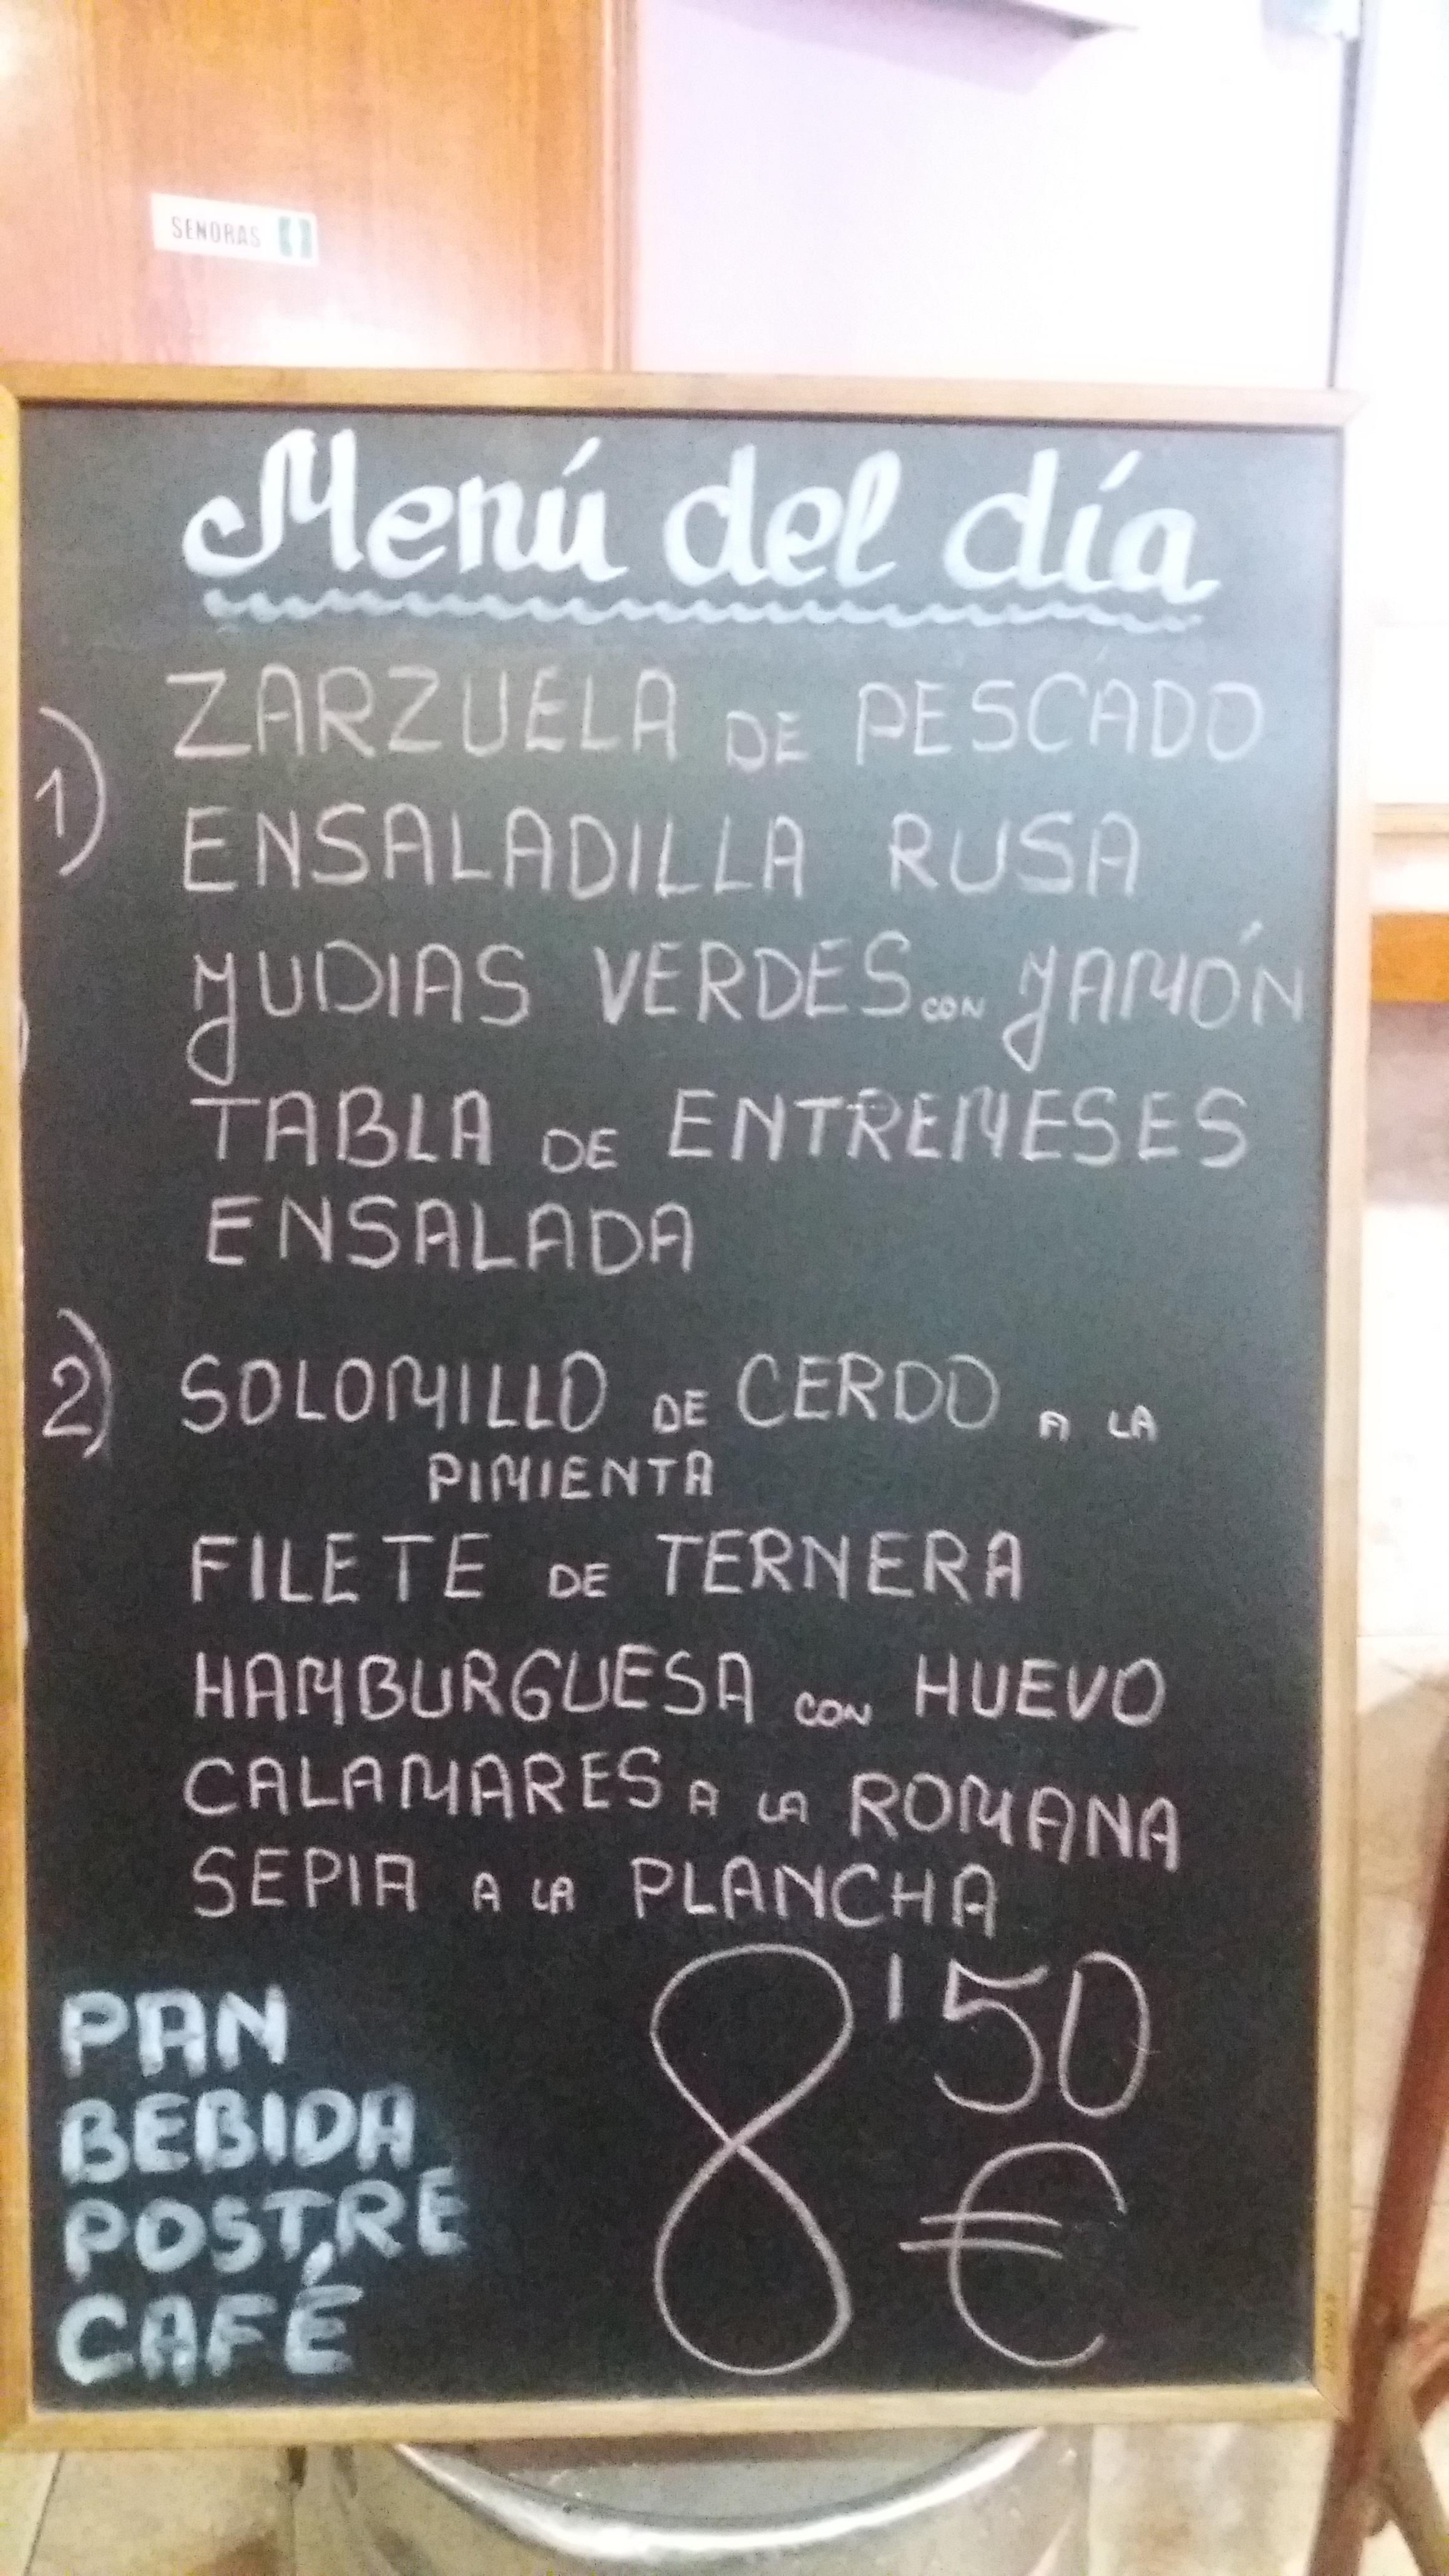 SEÑORAS
Menú del día
1) ZARZUELA DE PESCADO
ENSALADILLA RUSA
JUDIAS VERDES CON JAMÓN
TABLA DE ENTREMESES
ENSALADA
2) SOLOMILLO DE CERDO A LA
PIMIENTA
FILETE DE TERNERA
HAMBURGUESA CON HUEVO
CALAMARES A LA ROMANA
SEPIA A LA PLANCHA
PAN
BEBIDA
POSTRE
CAFÉ
8'50
€